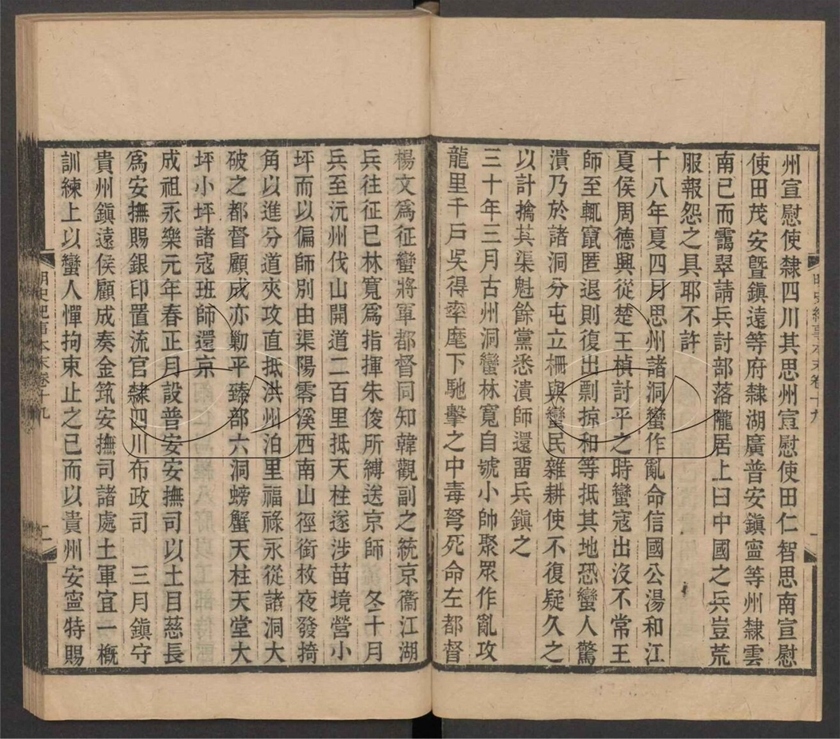 州宣慰使隸四川其思州宣慰使田仁智思南宣慰
使田茂安曁鎮遠等府隸湖廣普安鎮寧等州隸雲
南已而靄翠請兵討部落隴居上曰中國之兵豈荒
服報怨之具耶不許
十八年夏四月思州諸洞蠻作亂命信國公湯和江
夏侯周德興從楚王楨討平之時蠻寇出沒不常王
師至輒竄匿退則復出剽掠和等抵其地恐蠻人驚
潰乃於諸洞分屯立柵與蠻民雜耕使不復疑久之
以計擒其渠魁餘黨悉潰師還畱兵鎮之
三十年三月古州洞蠻林寬自號小師聚眾作亂攻
龍里千戶吳得率麾下馳擊之中毒弩死命左都督
明史紀事本末卷十九
一
楊文爲征蠻將軍都督同知韓觀副之統京衞江湖
兵往征已林寬爲指揮朱俊所縛送京師　冬十月
兵至沅州伐山開道二百里抵天柱遂涉苗境營小
坪而以偏師別由渠陽零溪西南山徑銜枚夜發掎
角以進分道夾攻直抵洪州泊里福祿永從諸洞大
破之都督顧成亦勦平臻部六洞螃蟹天柱天堂大
坪小坪諸寇班師還京
成祖永樂元年春正月設普安安撫司以土目慈長
爲安撫賜銀印置流官隸四川布政司　三月鎮守
貴州鎮遠侯顧成奏金筑安撫司諸處土軍宜一概
訓練上以蠻人憚拘束止之已而以貴州安寧特賜
明史紀事本末卷十九